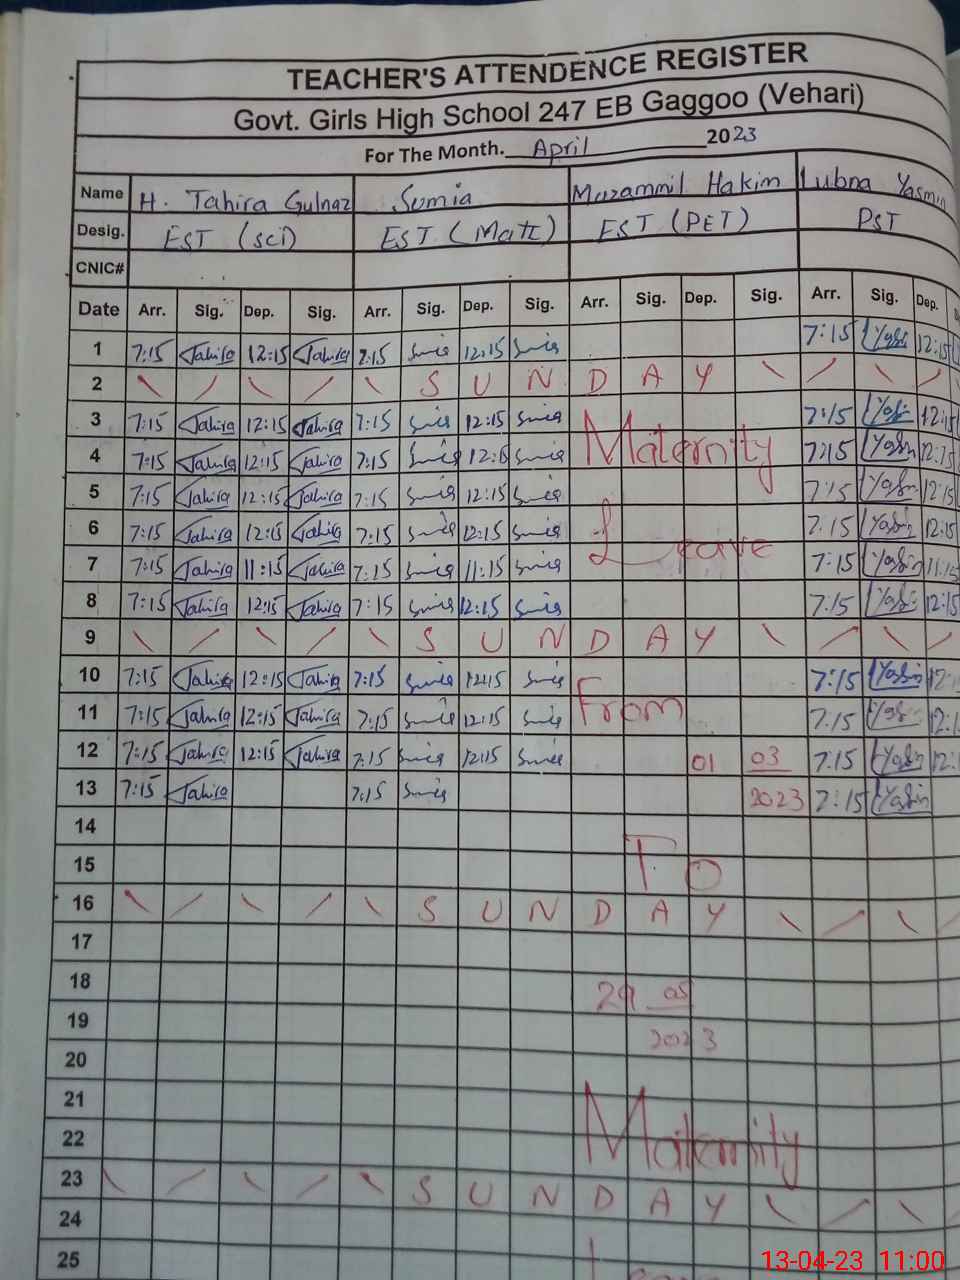 TEACHER'S ATTENDENCE REGISTER
Govt. Girls High School 247 EB Gaggoo (Vehari)
For The Month. April 2023
Name H. Tahira Gulnaz Sumia Muzammil Hakim Lubna Yasmin
Desig. EST (sci) EST (Math) EST (PET) PST
CNIC#
Date Arr. Sig. Dep. Sig. Arr. Sig. Dep. Sig. Arr. Sig. Dep. Sig. Arr. Sig. Dep.
1 7:15 Tahira 12:15 Tahira 7:15 Sumia 12:15 Sumia 7:15 Yasmin 12:15
2 S U N D A Y
3 7:15 Tahira 12:15 Tahira 7:15 Sumia 12:15 Sumia Maternity 7:15 Yasmin 12:15
4 7:15 Tahira 12:15 Tahira 7:15 Sumia 12:15 Sumia 7:15 Yasmin 12:15
5 7:15 Tahira 12:15 Tahira 7:15 Sumia 12:15 Sumia 7:15 Yasmin 12:15
6 7:15 Tahira 12:15 Tahira 7:15 Sumia 12:15 Sumia Leave 7:15 Yasmin 12:15
7 7:15 Tahira 11:15 Tahira 7:15 Sumia 11:15 Sumia 7:15 Yasmin 11:15
8 7:15 Tahira 12:15 Tahira 7:15 Sumia 12:15 Sumia 7:15 Yasmin 12:15
9 S U N D A Y
10 7:15 Tahira 12:15 Tahira 7:15 Sumia 12:15 Sumia 7:15 Yasmin
11 7:15 Tahira 12:15 Tahira 7:15 Sumia 12:15 Sumia From 7:15 Yasmin
12 7:15 Tahira 12:15 Tahira 7:15 Sumia 12:15 Sumia 01 03 7:15 Yasmin
13 7:15 Tahira 7:15 Sumia 2023 7:15 Yasmin
14
15 To
16 S U N D A Y
17
18 29 05
19 2023
20
21
22 Maternity
23 S U N D A Y
24
25
13-04-23 11:00